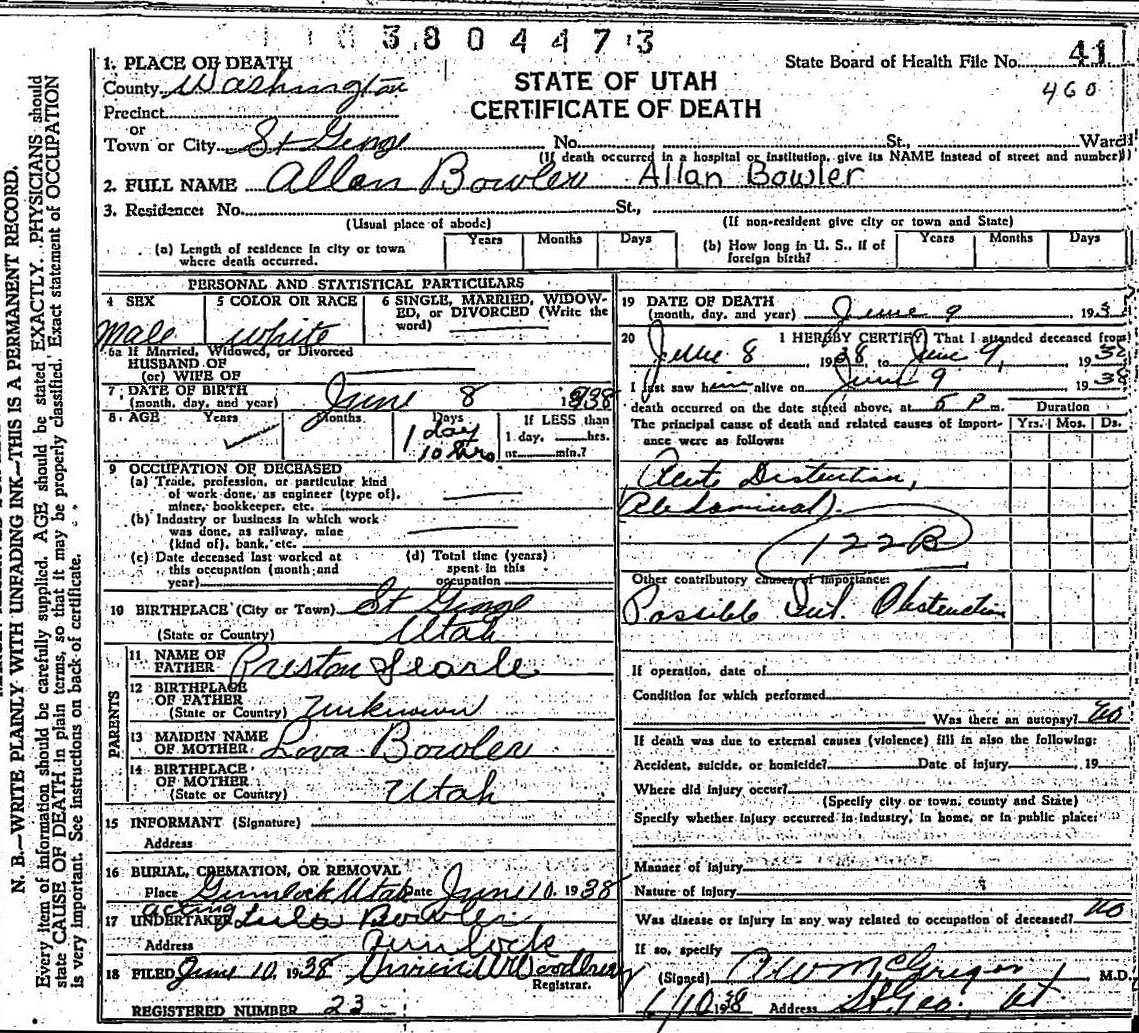 N. B.—WRITE PLAINLY WITH UNFADING INK—THIS IS A PERMANENT RECORD.
Every item of information should be carefully supplied. AGE should be stated EXACTLY. PHYSICIANS should
state CAUSE OF DEATH in plain terms, so that it may be properly classified. Exact statement of OCCUPATION
is very important. See instructions on back of certificate.
3 8 0 4 4 7 3
1. PLACE OF DEATH
County Washington
Precinct
or
Town or City St George No. St., Ward
(If death occurred in a hospital or institution, give its NAME instead of street and number)
STATE OF UTAH
CERTIFICATE OF DEATH
State Board of Health File No. 41
460
2. FULL NAME Allan Bowler Allan Bowler
3. Residence: No. St.,
(Usual place of abode) (If non-resident give city or town and State)
(a) Length of residence in city or town
where death occurred. Years Months Days
(b) How long in U. S., if of
foreign birth? Years Months Days
PERSONAL AND STATISTICAL PARTICULARS
4 SEX
Male
5 COLOR OR RACE
White
6 SINGLE, MARRIED, WIDOW-
ED, or DIVORCED (Write the
word)
6a If Married, Widowed, or Divorced
HUSBAND OF
(or) WIFE OF
7 DATE OF BIRTH
(month, day, and year) June 8 1938
8 AGE Years Months Days
1 day
10 hrs
If LESS than
1 day, hrs.
or min.?
9 OCCUPATION OF DECEASED
(a) Trade, profession, or particular kind
of work done, as engineer (type of),
miner, bookkeeper, etc.
(b) Industry or business in which work
was done, as railway, mine
(kind of), bank, etc.
(c) Date deceased last worked at
this occupation (month and
year)
(d) Total time (years)
spent in this
occupation
10 BIRTHPLACE (City or Town) St George
(State or Country) Utah
PARENTS
11 NAME OF
FATHER Preston Searle
12 BIRTHPLACE
OF FATHER
(State or Country) Unknown
13 MAIDEN NAME
OF MOTHER Lova Bowler
14 BIRTHPLACE
OF MOTHER
(State or Country) Utah
15 INFORMANT (Signature)
Address
16 BURIAL, CREMATION, OR REMOVAL
Place Gunlock Utah Date June 10 1938
acting
17 UNDERTAKER Bowler
Address Gunlock
18 FILED June 10, 1938 Woodbury
Registrar.
REGISTERED NUMBER 23
19 DATE OF DEATH
(month, day, and year) June 9 193
20 I HEREBY CERTIFY That I attended deceased from
June 8 1938 to June 9, 1938
I last saw him alive on June 9 1938
death occurred on the date stated above, at 5 P m.
The principal cause of death and related causes of import-
ance were as follows:
Duration
Yrs. Mos. Ds.
Acute Distention,
Abdominal).
122B
Other contributory causes of importance:
Possible Int. Obstruction
If operation, date of
Condition for which performed
Was there an autopsy? no
If death was due to external causes (violence) fill in also the following:
Accident, suicide, or homicide? Date of injury 19
Where did injury occur?
(Specify city or town, county and State)
Specify whether injury occurred in industry, in home, or in public place:
Manner of injury
Nature of injury
Was disease or injury in any way related to occupation of deceased? no
If so, specify
(Signed) McGregor M.D.
6/10 1938 Address St. Geo. Ut.